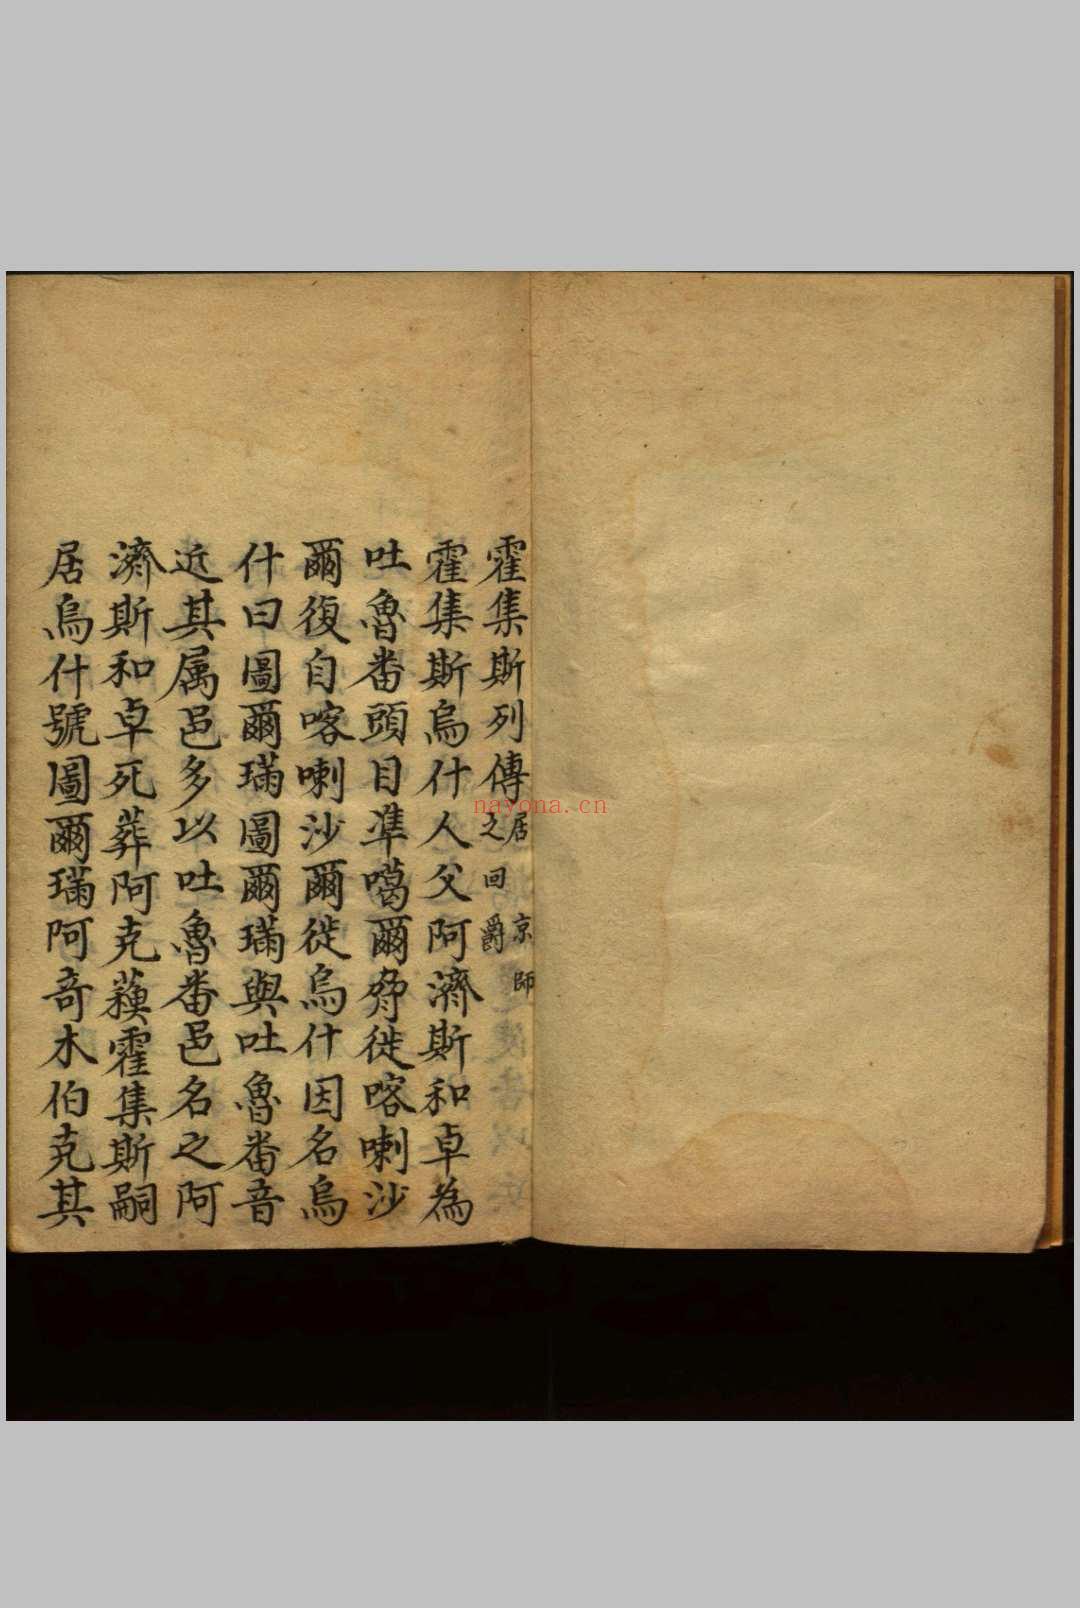 霍集斯列傳居京師之回爵
霍集斯烏什人父阿濟斯和卓為
吐魯番頭目準噶爾脅徙喀喇沙
爾復自喀喇沙爾徙烏什因名烏
什曰圖爾璊圖爾璊與吐魯番音
近其属邑多以吐魯番邑名之阿
濟斯和卓死葬阿克蘓霍集斯嗣
居烏什號圖爾璊阿竒木伯克其
nayona.cn